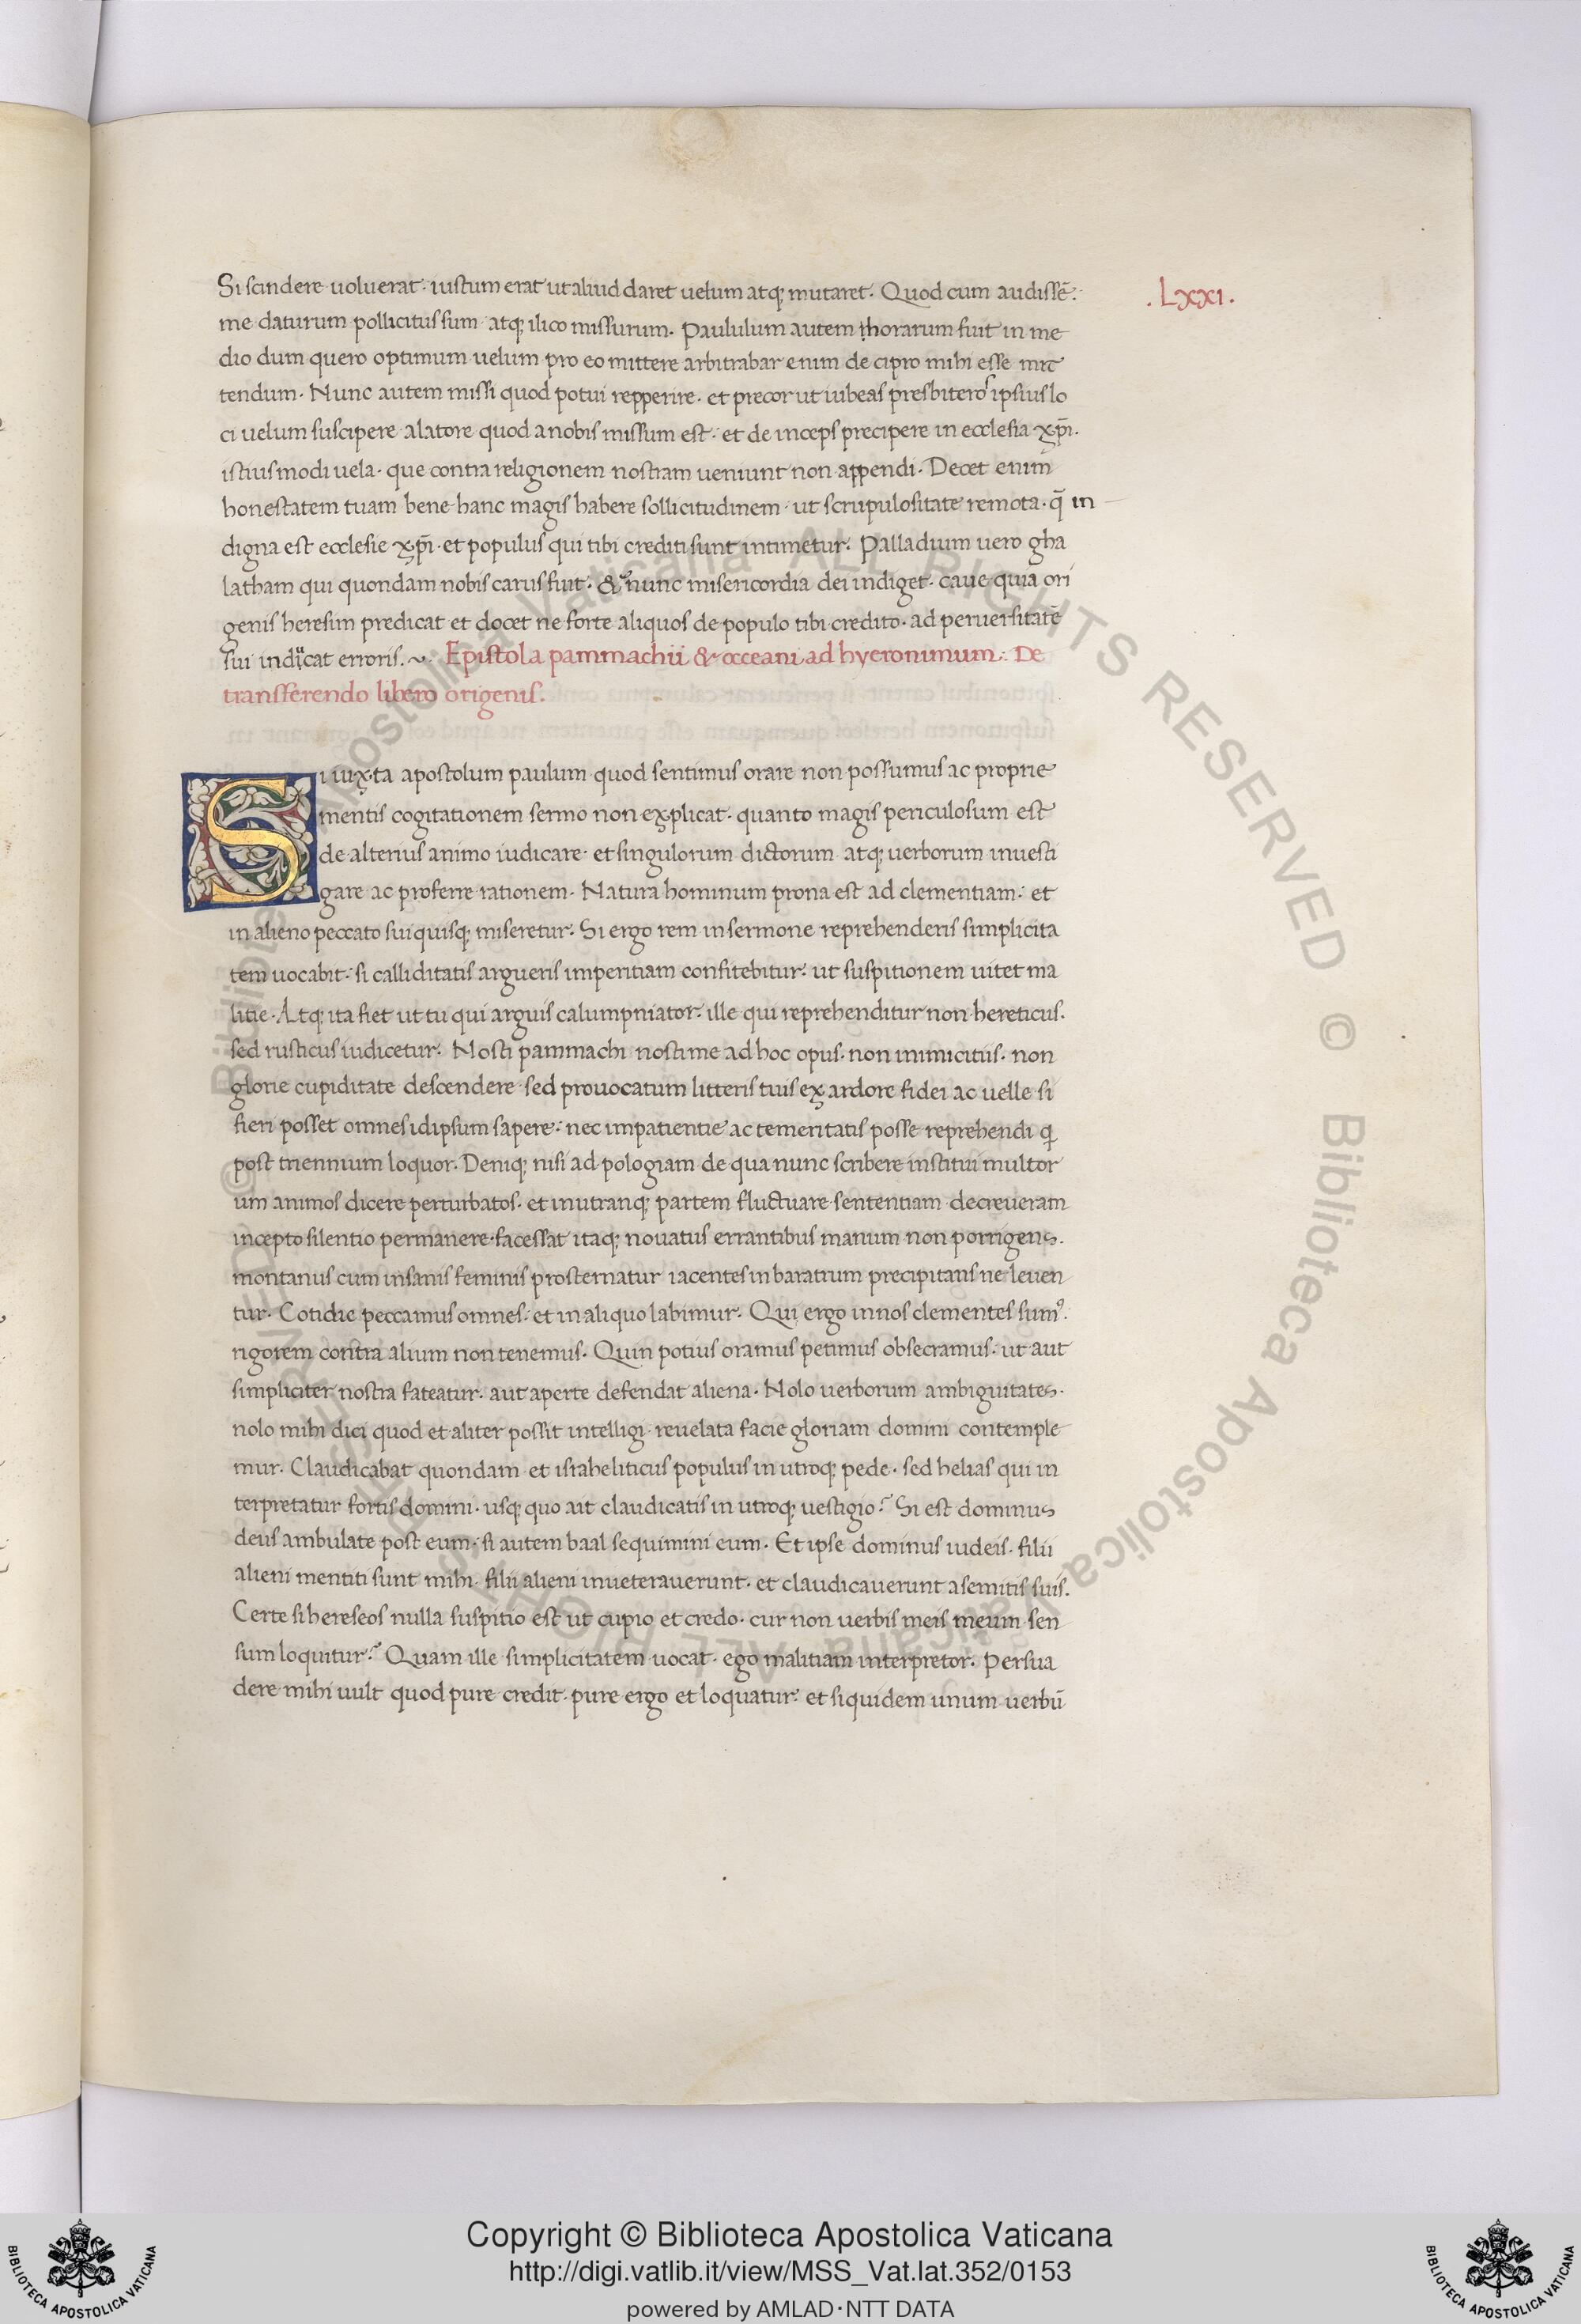 Si scindere uoluerat· iustum erat ut aliud daret uelum atq; mutaret. Quod cum audissē:
.Lxxi.
me daturum pollicitus sum· atq; ilico missurum. Paululum autem horarum fuit in me
dio dum quero optimum uelum pro eo mittere arbitrabar enim de cipro mihi esse mit
tendum. Nunc autem missi quod potui repperire. et precor ut iubeas presbitero ipsius lo
ci uelum suscipere alatore quod a nobis missum est: et de inceps precipere in ecclesia xp̄i.
istius modi uela· que contra religionem nostram ueniunt non appendi. Decet enim
honestatem tuam bene hanc magis habere sollicitudinem· ut scrupulositate remota. q̄ in
digna est ecclesie xp̄i· et populus qui tibi crediti sunt intimetur. Palladium uero gha
latham qui quondam nobis carus fuit: & nunc misericordia dei indiget. caue quia ori
genis heresim predicat et docet ne forte aliquos de populo tibi credito. ad peruersitatē
sui inducat erroris.~ Epistola pammachii & occeani ad hyeronimum: De
transferendo libero origenis.
Si iuxta apostolum paulum quod sentimus orare non possumus ac proprie
mentis cogitationem sermo non explicat. quanto magis periculosum est
de alterius animo iudicare· et singulorum dictorum atq; uerborum inuesti
gare ac proferre rationem. Natura hominum prona est ad clementiam: et
in alieno peccato sui quisq; miseretur. Si ergo rem in sermone reprehenderis simplicita
tem uocabit: si calliditatis argueris imperitiam confitebitur: ut suspitionem uitet ma
litie. Atq; ita fiet ut tu qui arguis calumpniator: ille qui reprehenditur non hereticus.
sed rusticus iudicetur. Nosti pammachi nosti me ad hoc opus. non inimicitiis. non
glorie cupiditate descendere sed prouocatum litteris tuis ex ardore fidei ac uelle si
fieri posset omnes idipsum sapere: nec impatientie ac temeritatis posse reprehendi q
post triennium loquor. Deniq; nisi ad pologiam de qua nunc scribere institui multor
um animos dicere perturbatos. et inutranq; partem fluctuare sententiam decreueram
incepto silentio permanere· facessat itaq; nouatus errantibus manum non porrigens.
montanus cum insanis feminis prosternatur iacentes in baratrum precipitans ne leuen
tur. Cotidie peccamus omnes: et in aliquo labimur. Qui ergo in nos clementes sumꝰ.
rigorem contra alium non tenemus. Quin potius oramus petimus obsecramus: ut aut
simpliciter nostra fateatur. aut aperte defendat aliena. Nolo uerborum ambiguitates.
nolo mihi dici quod et aliter possit intelligi· reuelata facie gloriam domini contemple
mur. Claudicabat quondam et israheliticus populus in utroq; pede. sed helias qui in
terpretatur fortis domini. usq; quo ait claudicatis in utroq; uestigio? Si est dominus
deus ambulate post eum. si autem baal sequimini eum. Et ipse dominus iudeis. filii
alieni mentiti sunt mihi. filii alieni inueterauerunt. et claudicauerunt a semitis suis.
Certe si hereseos nulla suspitio est ut cupio et credo. cur non uerbis meis meum sen
sum loquitur? Quam ille simplicitatem uocat. ego malitiam interpretor. Persua
dere mihi uult quod pure credit. pure ergo et loquatur: et siquidem unum uerbū
© Biblioteca Apostolica Vaticana ALL RIGHTS RESERVED © Biblioteca Apostolica Vaticana ALL RIGHTS RESERVED
BIBLIOTECA APOSTOLICA VATICANA
Copyright © Biblioteca Apostolica Vaticana
http://digi.vatlib.it/view/MSS_Vat.lat.352/0153
powered by AMLAD·NTT DATA
BIBLIOTECA APOSTOLICA VATICANA